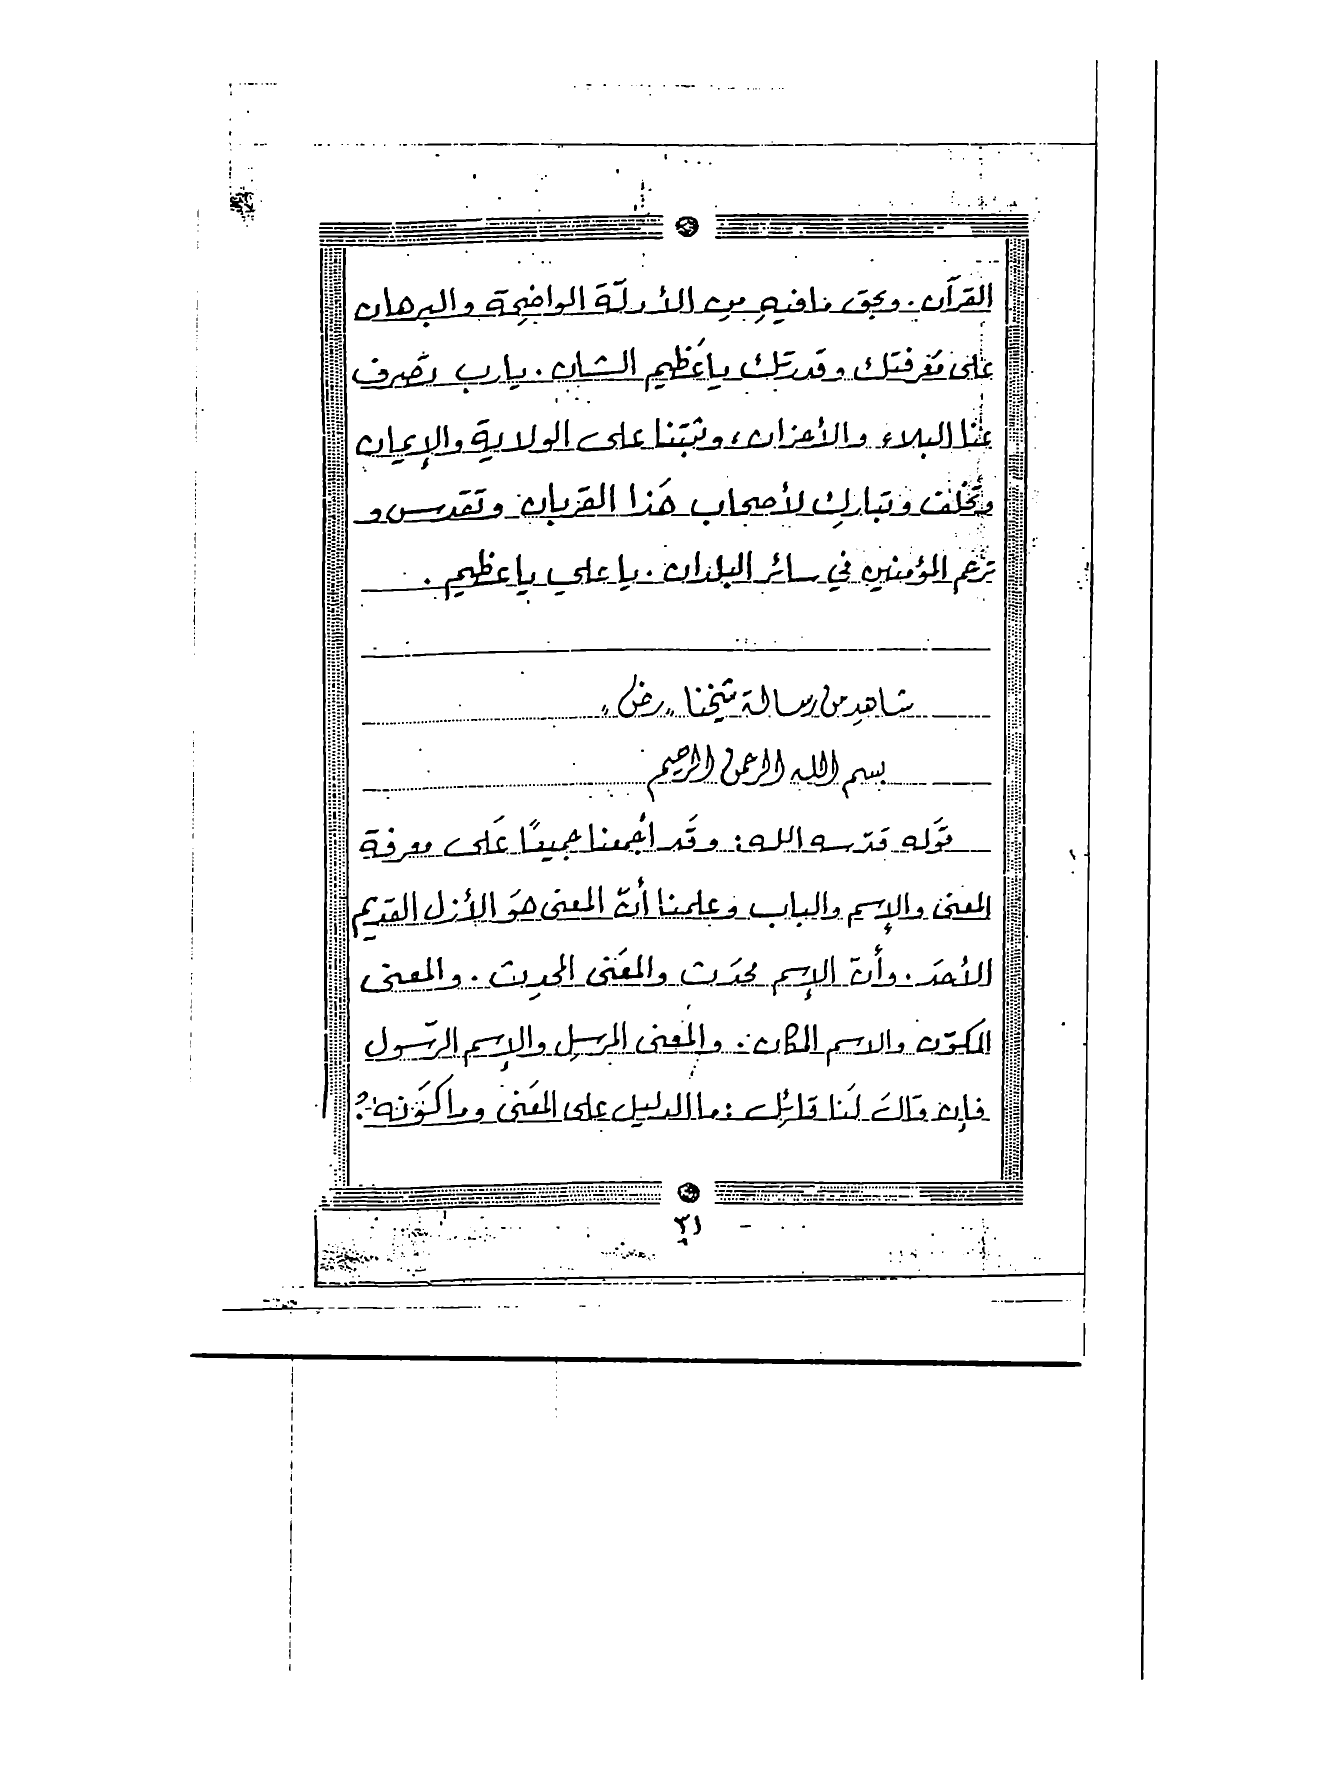 القرآن. وبحق مافيهِ مِن الأدلّة الواضِحة والبرهان
على مَعرفتك وقدرتك ياعَظيم الشان. يارب تَصرف
عنّا البلاء والأحزان، وثبّتنا على الولاية والإيمان
وتَخْلف وتبارك لأصحاب هَذا القربان وتقدس و
ترحم المؤمنين في سائر البلدان. يا علي يا عظيم.
شاهد من رسالة شيخنا "رض"
بسم الله الرحمن الرحيم
قَوله قدّس الله: وقَد أجمعنا جميعًا عَلى معرفة
المعنى والإسم والباب وعلمنا أنّ المعنى هوَ الأزل القديم
الأحَد. وأنّ الإسم مُحدَث والمعَنى المحدِث. والمعنى
المكَوّن والاسم المكان. والمعنى المرسِل والإسم الرّسول
فإن قالَ لَنا قائِل: ما الدليل على المعَنى وما كَوَنه؟
٢١